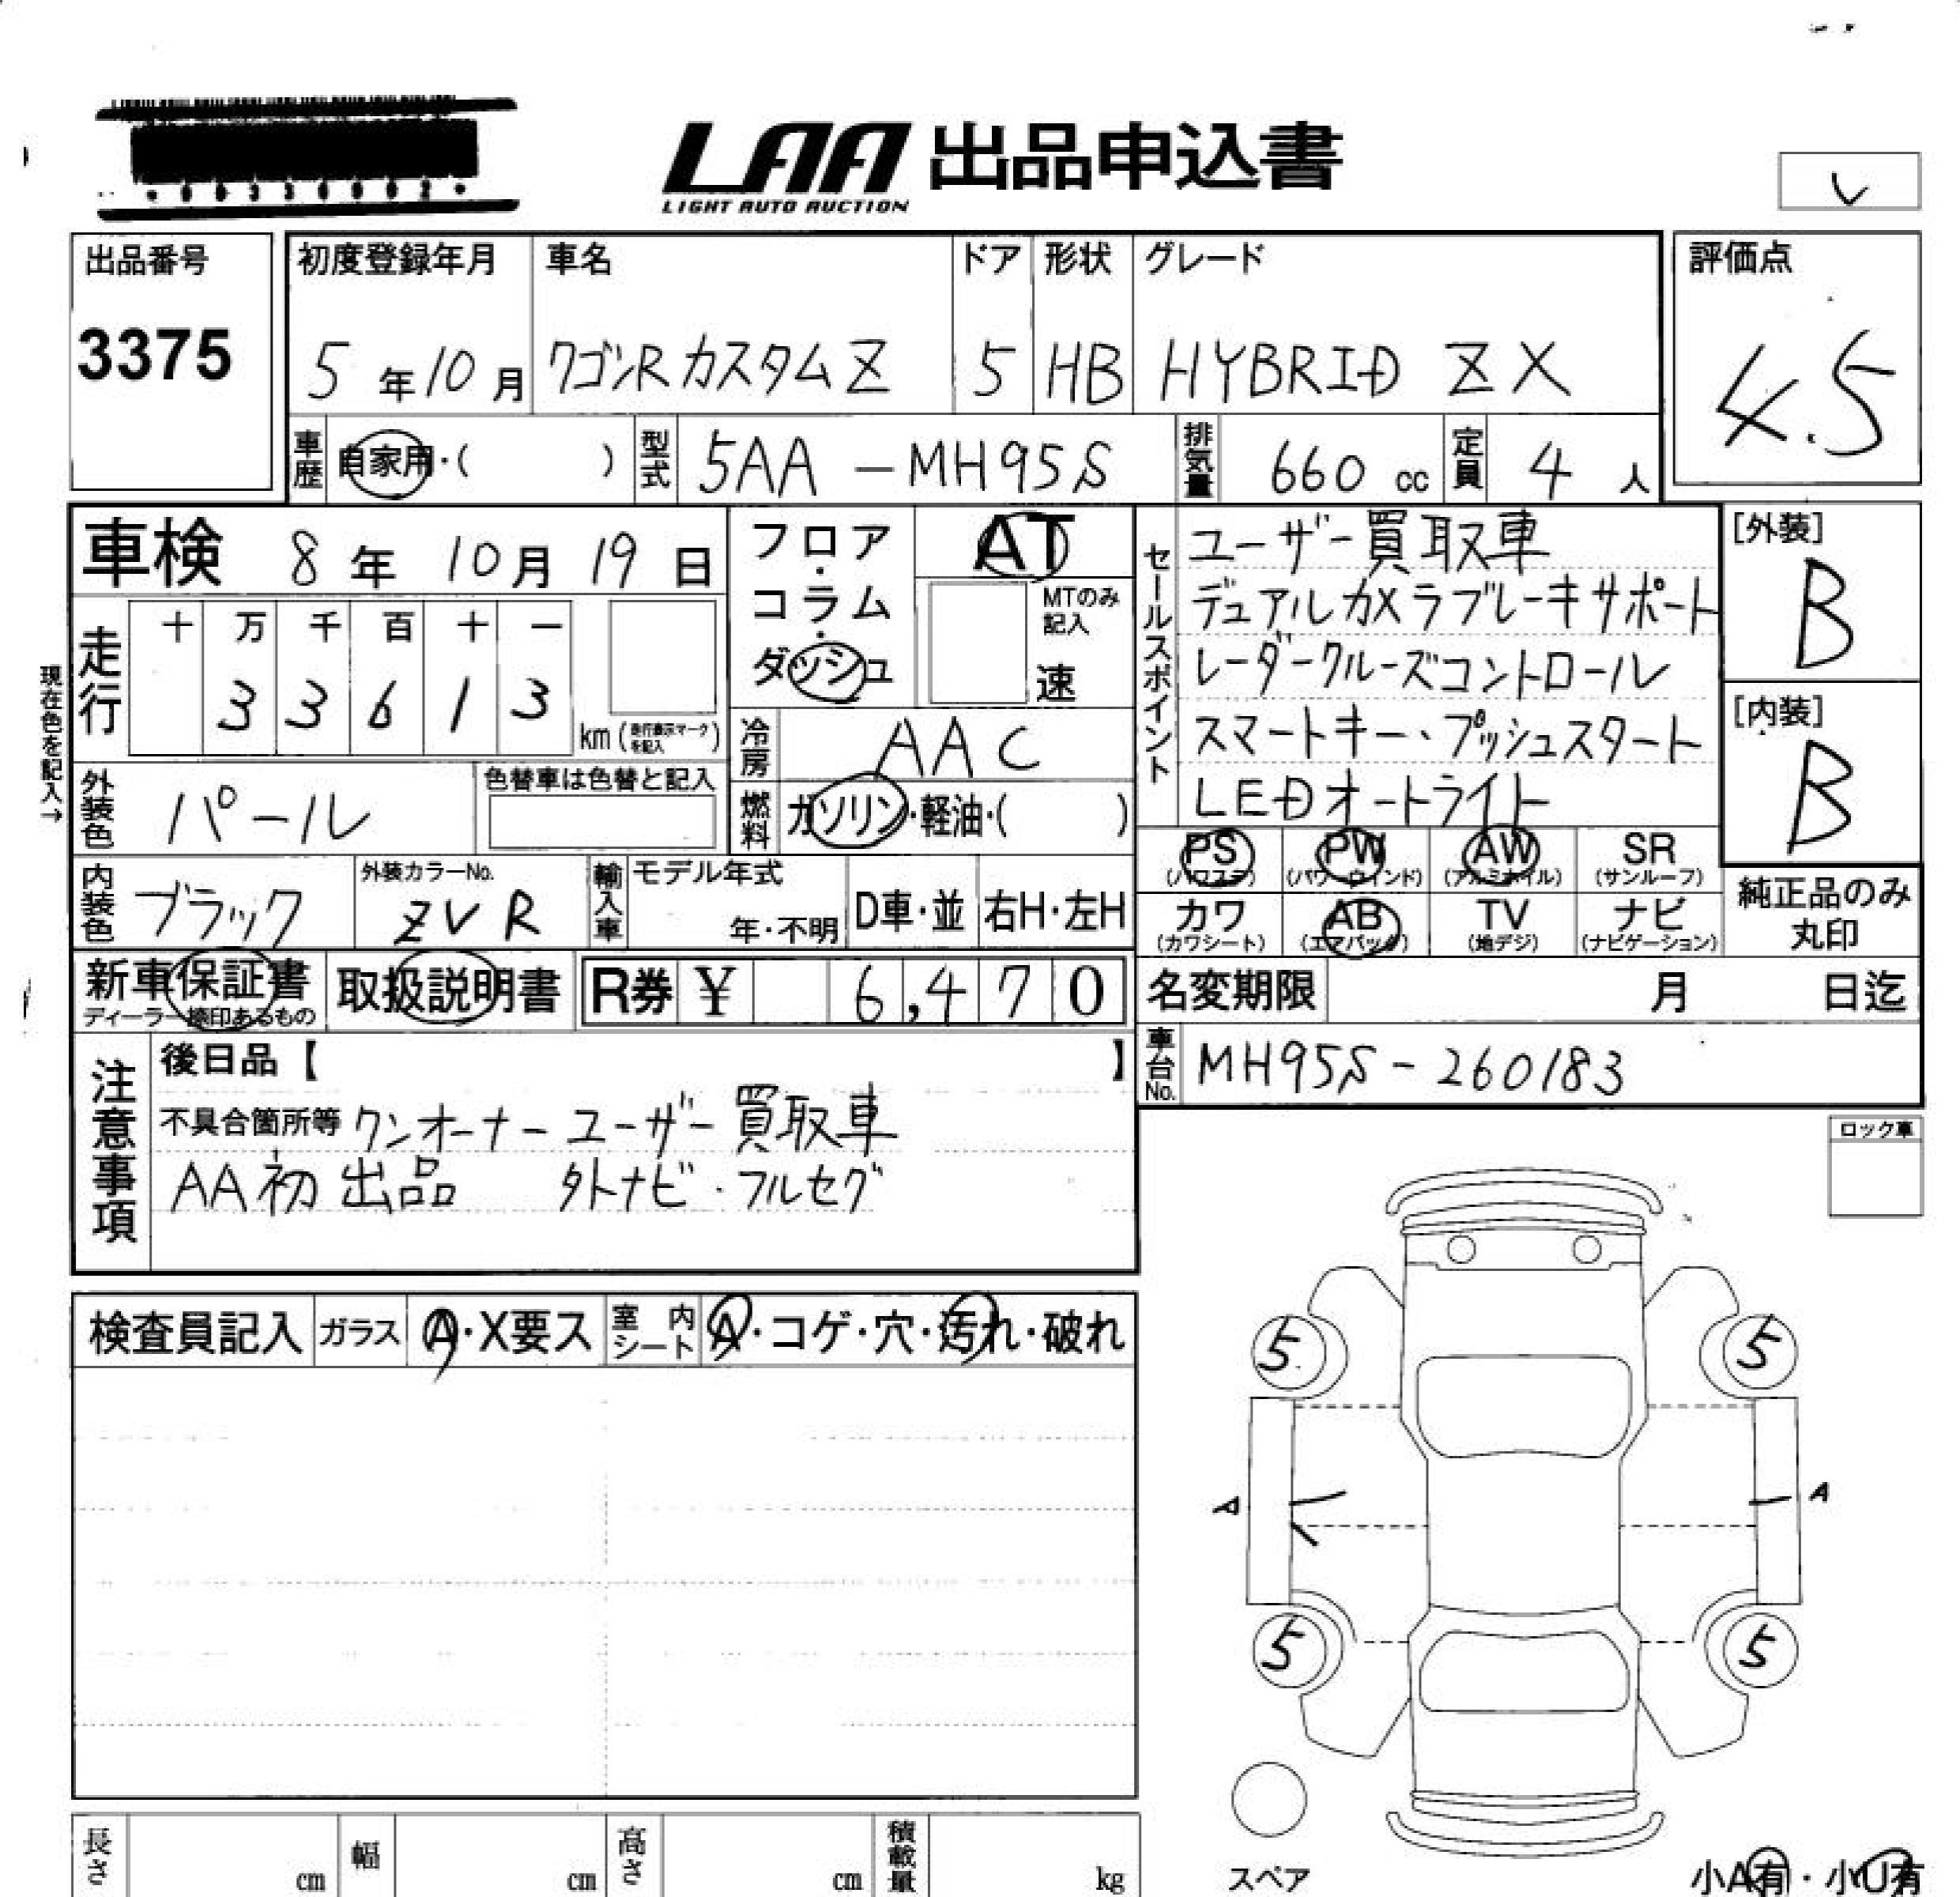 LAA 出品申込書
LIGHT AUTO AUCTION
出品番号
3375
初度登録年月
5年10月
車名
ワゴンRカスタムZ
ドア
5
形状
HB
グレード
HYBRID ZX
評価点
4.5
車歴
自家用・( )
型式
5AA-MH95S
排気量
660 cc
定員
4 人
車検 8年10月19日
走行
十 万 千 百 十 一
3 3 6 1 3
km(走行表示マークを記入)
現在色を記入→
外装色
パール
色替車は色替と記入
内装色
ブラック
外装カラーNo.
ZVR
輸入車
モデル年式
年・不明
D車・並
右H・左H
フロア・
コラム・
ダッシュ
AT
MTのみ記入
速
冷房
AAC
燃料
ガソリン・軽油・( )
セールスポイント
ユーザー買取車
デュアルカメラブレーキサポート
レーダークルーズコントロール
スマートキー、プッシュスタート
LEDオートライト
[外装]
B
[内装]
B
PS (パワステ)
PW (パワーウインド)
AW (アルミホイル)
SR (サンルーフ)
カワ (カワシート)
AB (エアバッグ)
TV (地デジ)
ナビ (ナビゲーション)
純正品のみ
丸印
新車保証書
ディーラー捺印あるもの
取扱説明書
R券 ¥ 6,470
名変期限 月 日迄
車台No.
MH95S-260183
注意事項
後日品【 】
不具合箇所等 ワンオーナー ユーザー買取車
AA初出品 外ナビ・フルセグ
ロック車
検査員記入
ガラス
A・X要ス
室内シート
A・コゲ・穴・汚れ・破れ
5 5
A A
5 5
スペア
長さ cm
幅 cm
高さ cm
積載量 kg
小A有・小U有